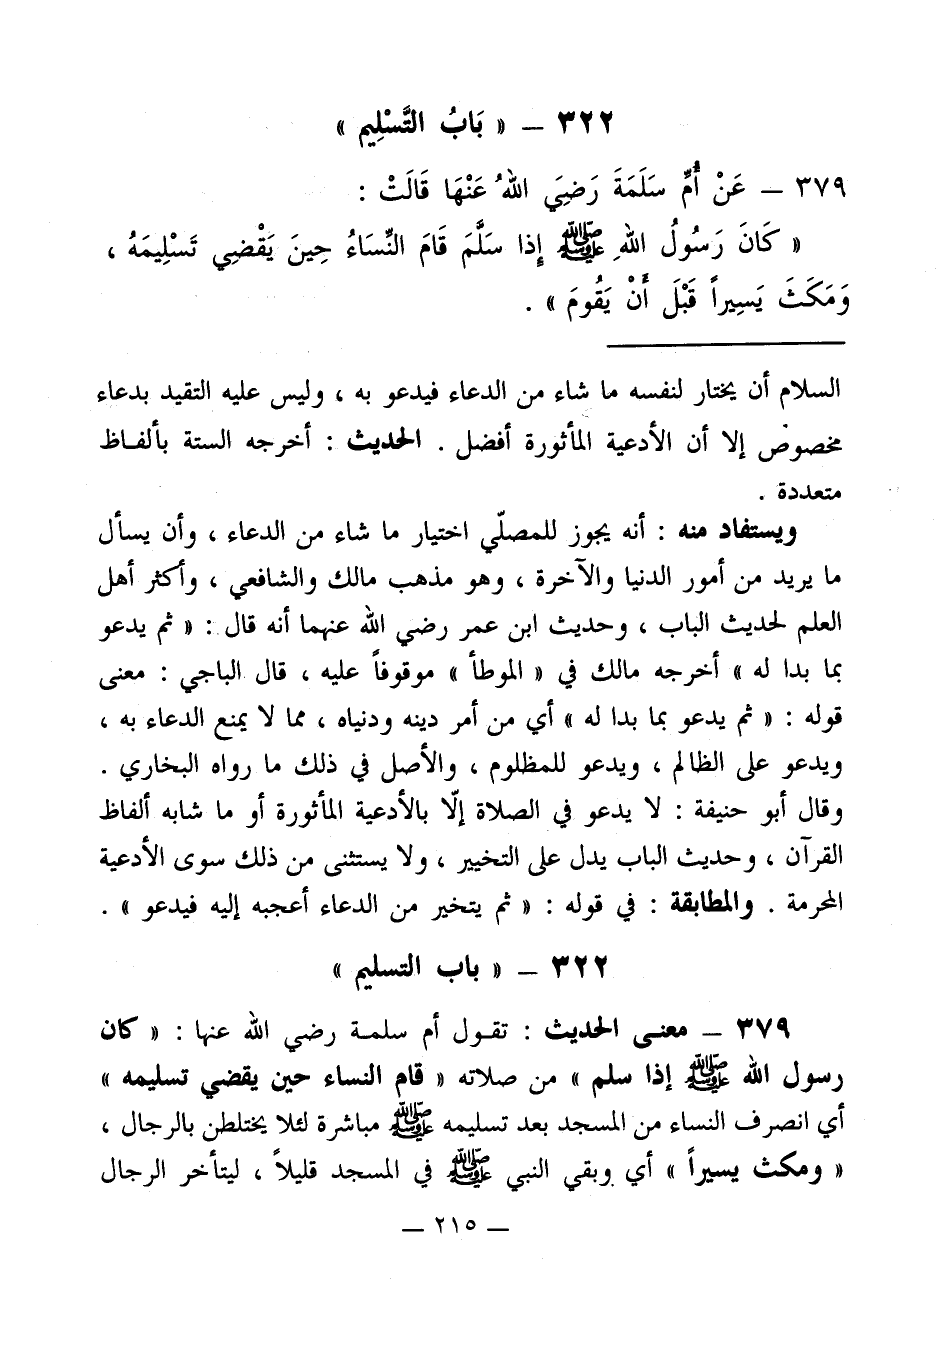 ٣٢٢ – « بَابُ التَّسْلِيمِ »
٣٧٩ – عَنْ أُمِّ سَلَمَةَ رَضِيَ اللهُ عَنْهَا قَالَتْ :
« كَانَ رَسُولُ اللهِ ﷺ إِذا سَلَّمَ قَامَ النِّسَاءُ حِينَ يَقْضِي تَسْلِيمَهُ ،
وَمَكَثَ يَسِيراً قَبْلَ أَنْ يَقُومَ » .
السلام أن يختار لنفسه ما شاء من الدعاء فيدعو به ، وليس عليه التقيد بدعاء
مخصوص إلا أن الأدعية المأثورة أفضل . الحديث : أخرجه الستة بألفاظ
متعددة .
ويستفاد منه : أنه يجوز للمصلّي اختيار ما شاء من الدعاء ، وأن يسأل
ما يريد من أمور الدنيا والآخرة ، وهو مذهب مالك والشافعي ، وأكثر أهل
العلم لحديث الباب ، وحديث ابن عمر رضي الله عنهما أنه قال : « ثم يدعو
بما بدا له » أخرجه مالك في « الموطأ » موقوفاً عليه ، قال الباجي : معنى
قوله : « ثم يدعو بما بدا له » أي من أمر دينه ودنياه ، مما لا يمنع الدعاء به ،
ويدعو على الظالم ، ويدعو للمظلوم ، والأصل في ذلك ما رواه البخاري .
وقال أبو حنيفة : لا يدعو في الصلاة إلّا بالأدعية المأثورة أو ما شابه ألفاظ
القرآن ، وحديث الباب يدل على التخيير ، ولا يستثنى من ذلك سوى الأدعية
المحرمة . والمطابقة : في قوله : « ثم يتخير من الدعاء أعجبه إليه فيدعو » .
٣٢٢ – « باب التسليم »
٣٧٩ – معنى الحديث : تقول أم سلمة رضي الله عنها : « كان
رسول الله ﷺ إذا سلم » من صلاته « قام النساء حين يقضي تسليمه »
أي انصرف النساء من المسجد بعد تسليمه ﷺ مباشرة لئلا يختلطن بالرجال ،
« ومكث يسيراً » أي وبقي النبي ﷺ في المسجد قليلاً ، ليتأخر الرجال
– ٢١٥ –